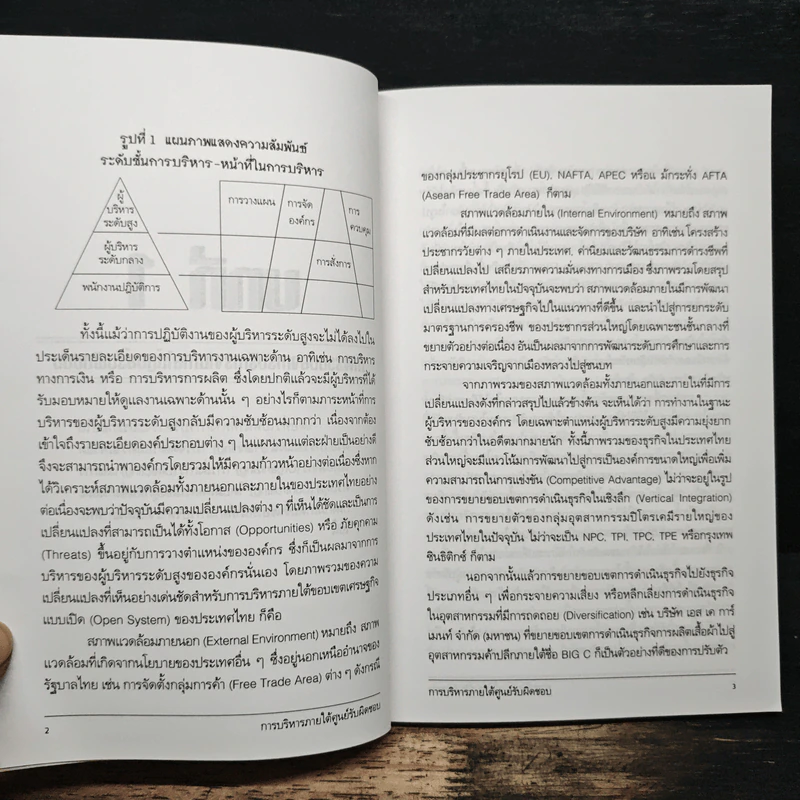 รูปที่ 1 แผนภาพแสดงความสัมพันธ์
ระดับชั้นการบริหาร-หน้าที่ในการบริหาร
ผู้
บริหาร
ระดับสูง
ผู้บริหาร
ระดับกลาง
พนักงานปฏิบัติการ
การวางแผน
การจัด
องค์กร
การ
ควบคุม
การสั่งการ
ทั้งนี้แม้ว่าการปฏิบัติงานของผู้บริหารระดับสูงจะไม่ได้ลงไปใน
ประเด็นรายละเอียดของการบริหารงานเฉพาะด้าน อาทิเช่น การบริหาร
ทางการเงิน หรือ การบริหารการผลิต ซึ่งโดยปกติแล้วจะมีผู้บริหารที่ได้
รับมอบหมายให้ดูแลงานเฉพาะด้านนั้น ๆ อย่างไรก็ตามภาระหน้าที่การ
บริหารของผู้บริหารระดับสูงกลับมีความซับซ้อนมากกว่า เนื่องจากต้อง
เข้าใจถึงรายละเอียดองค์ประกอบต่าง ๆ ในแผนงานแต่ละฝ่ายเป็นอย่างดี
จึงจะสามารถนำพาองค์กรโดยรวมให้มีความก้าวหน้าอย่างต่อเนื่องซึ่งหาก
ได้วิเคราะห์สภาพแวดล้อมทั้งภายนอกและภายในของประเทศไทยอย่าง
ต่อเนื่องจะพบว่าปัจจุบันมีความเปลี่ยนแปลงต่าง ๆ ที่เห็นได้ชัดและเป็นการ
เปลี่ยนแปลงที่สามารถเป็นได้ทั้งโอกาส (Opportunities) หรือ ภัยคุกคาม
(Threats) ขึ้นอยู่กับการวางตำแหน่งขององค์กร ซึ่งก็เป็นผลมาจากการ
บริหารของผู้บริหารระดับสูงขององค์กรนั่นเอง โดยภาพรวมของความ
เปลี่ยนแปลงที่เห็นอย่างเด่นชัดสำหรับการบริหารภายใต้ขอบเขตเศรษฐกิจ
แบบเปิด (Open System) ของประเทศไทย ก็คือ
สภาพแวดล้อมภายนอก (External Environment) หมายถึง สภาพ
แวดล้อมที่เกิดจากนโยบายของประเทศอื่น ๆ ซึ่งอยู่นอกเหนืออำนาจของ
รัฐบาลไทย เช่น การจัดตั้งกลุ่มการค้า (Free Trade Area) ต่าง ๆ ดังกรณี
2
การบริหารภายใต้ศูนย์รับผิดชอบ
ของกลุ่มประชากรยุโรป (EU), NAFTA, APEC หรือแ ม้กระทั่ง AFTA
(Asean Free Trade Area) ก็ตาม
สภาพแวดล้อมภายใน (Internal Environment) หมายถึง สภาพ
แวดล้อมที่มีผลต่อการดำเนินงานและจัดการของบริษัท อาทิเช่น โครงสร้าง
ประชากรวัยต่าง ๆ ภายในประเทศ, ค่านิยมและวัฒนธรรมการดำรงชีพที่
เปลี่ยนแปลงไป เสถียรภาพความมั่นคงทางการเมือง ซึ่งภาพรวมโดยสรุป
สำหรับประเทศไทยในปัจจุบันจะพบว่า สภาพแวดล้อมภายในมีการพัฒนา
เปลี่ยนแปลงทางเศรษฐกิจไปในแนวทางที่ดีขึ้น และนำไปสู่การยกระดับ
มาตรฐานการครองชีพ ของประชากรส่วนใหญ่โดยเฉพาะชนชั้นกลางที่
ขยายตัวอย่างต่อเนื่อง อันเป็นผลมาจากการพัฒนาระดับการศึกษาและการ
กระจายความเจริญจากเมืองหลวงไปสู่ชนบท
จากภาพรวมของสภาพแวดล้อมทั้งภายนอกและภายในที่มีการ
เปลี่ยนแปลงดังที่กล่าวสรุปไปแล้วข้างต้น จะเห็นได้ว่า การทำงานในฐานะ
ผู้บริหารขององค์กร โดยเฉพาะตำแหน่งผู้บริหารระดับสูงมีความยุ่งยาก
ซับซ้อนกว่าในอดีตมากมายนัก ทั้งนี้ภาพรวมของธุรกิจในประเทศไทย
ส่วนใหญ่จะมีแนวโน้มการพัฒนาไปสู่การเป็นองค์การขนาดใหญ่เพื่อเพิ่ม
ความสามารถในการแข่งขัน (Competitive Advantage) ไม่ว่าจะอยู่ในรูป
ของการขยายขอบเขตการดำเนินธุรกิจในเชิงลึก (Vertical Integration)
ดังเช่น การขยายตัวของกลุ่มอุตสาหกรรมปิโตรเคมีรายใหญ่ของ
ประเทศไทยในปัจจุบัน ไม่ว่าจะเป็น NPC, TPI, TPC, TPE หรือกรุงเทพ
ซินธิติกซ์ ก็ตาม
นอกจากนั้นแล้วการขยายขอบเขตการดำเนินธุรกิจไปยังธุรกิจ
ประเภทอื่น ๆ เพื่อกระจายความเสี่ยง หรือหลีกเลี่ยงการดำเนินธุรกิจ
ในอุตสาหกรรมที่มีการถดถอย (Diversification) เช่น บริษัท เอส เค การ์
เมนท์ จำกัด (มหาชน) ที่ขยายขอบเขตการดำเนินธุรกิจการผลิตเสื้อผ้าไปสู่
อุตสาหกรรมค้าปลีกภายใต้ชื่อ BIG C ก็เป็นตัวอย่างที่ดีของการปรับตัว
การบริหารภายใต้ศูนย์รับผิดชอบ
3